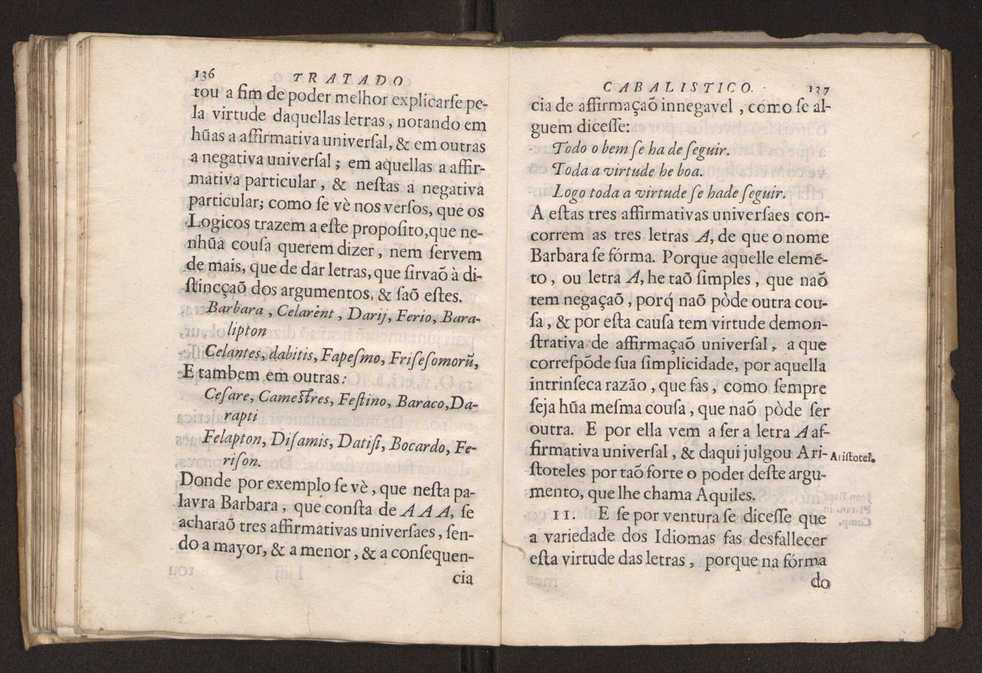 136 TRATADO
tou a fim de poder melhor explicarſe pe-
la virtude daquellas letras, notando em
hũas a affirmativa univerſal, & em outras
a negativa univerſal; em aquellas a affir-
mativa particular, & neſtas a negativa
particular; como ſe vè nos verſos, que os
Logicos trazem a eſte propoſito, que ne-
nhũa couſa querem dizer, nem ſervem
de mais, que de dar letras, que ſirvaõ à di-
ſtincçaõ dos argumentos, & ſaõ eſtes.
Barbara, Celarènt, Darij, Ferio, Bara-
lipton
Celantes, dabitis, Fapeſmo, Friſeſomorũ,
E tambem em outras:
Ceſare, Cameſtres, Feſtino, Baraco, Da-
rapti
Felapton, Diſamis, Datiſi, Bocardo, Fe-
riſon.
Donde por exemplo ſe vè, que neſta pa-
lavra Barbara, que conſta de A A A, ſe
acharaõ tres affirmativas univerſaes, ſen-
do a mayor, & a menor, & a conſequen-
cia
CABALISTICO. 137
cia de affirmaçaõ innegavel, como ſe al-
guem diceſſe:
Todo o bem ſe ha de ſeguir.
Toda a virtude he boa.
Logo toda a virtude ſe hade ſeguir.
A eſtas tres affirmativas univerſaes con-
correm as tres letras A, de que o nome
Barbara ſe fórma. Porque aquelle elemẽ-
to, ou letra A, he taõ ſimples, que naõ
tem negaçaõ, porq̃ naõ pòde outra cou-
ſa, & por eſta cauſa tem virtude demon-
ſtrativa de affirmaçaõ univerſal, a que
correſpõde ſua ſimplicidade, por aquella
intrinſeca razão, que fas, como ſempre
ſeja hũa meſma couſa, que naõ pòde ſer
outra. E por ella vem a ſer a letra A af-
firmativa univerſal, & daqui julgou Ari-
ſtoteles por taõ forte o poder deſte argu-
mento, que lhe chama Aquiles.
Ariſtotel.
11. E ſe por ventura ſe diceſſe que
a variedade dos Idiomas fas desfallecer
eſta virtude das letras, porque na fórma
do